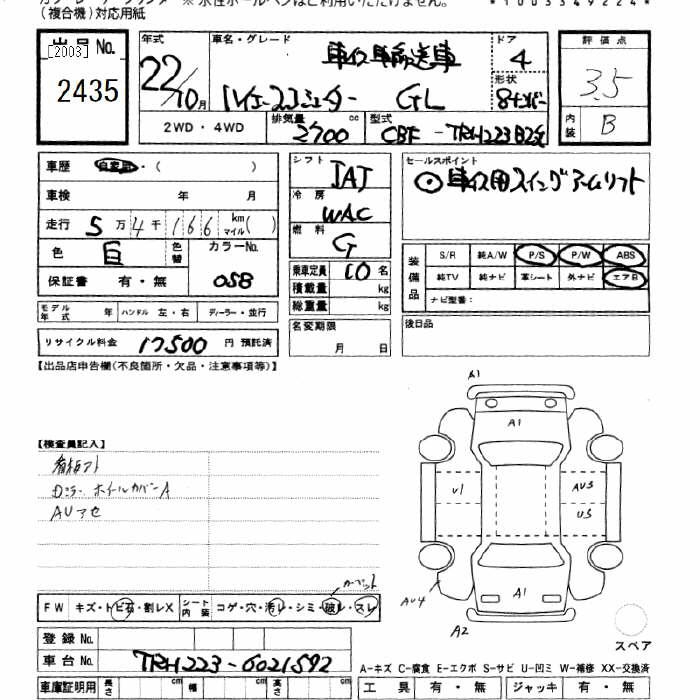 (複合機)対応用紙
*1003549224*
出品No. [2003] 2435
年式 22/10月
車名・グレード 車イス車輸送車
ハイエースコミューター GL
ドア 4
形状 8ナンバー
2WD・4WD
排気量 2700 cc
型式 CBF-TRH223B改
評価点 3.5
内装 B
車歴 自家用・( )
車検 年 月
走行 5万4千166 km マイル( )
色 白 色替 カラーNo. 058
保証書 有・無
モデル年式 年 ハンドル 左・右 ディーラー・並行
リサイクル料金 17500 円 預託済
シフト IAT
冷房 WAC
燃料 G
乗車定員 10 名
積載量 kg
総重量 kg
名変期限 月 日
セールスポイント
⊙車イス用スイングアームリフト
装備品 S/R 純A/W P/S P/W ABS
純TV 純ナビ 革シート 外ナビ エアB
ナビ型番:
後日品
【出品店申告欄(不良箇所・欠品・注意事項等)】
【検査員記入】
看板アト
ホイールカバーA
AUアセ
A1
A1
U1
AU3
U3
AU4
A1
A2
スペア
カーペット
FW キズ・トビ石・割レX シート内装 コゲ・穴・汚レ・シミ・破レ・スレ
登録No.
車台No. TRH223-6021592
A-キズ C-腐食 E-エクボ S-サビ U-凹ミ W-補修 XX-交換済
車庫証明用 長さ cm 幅 cm 高さ cm
工具 有・無 ジャッキ 有・無